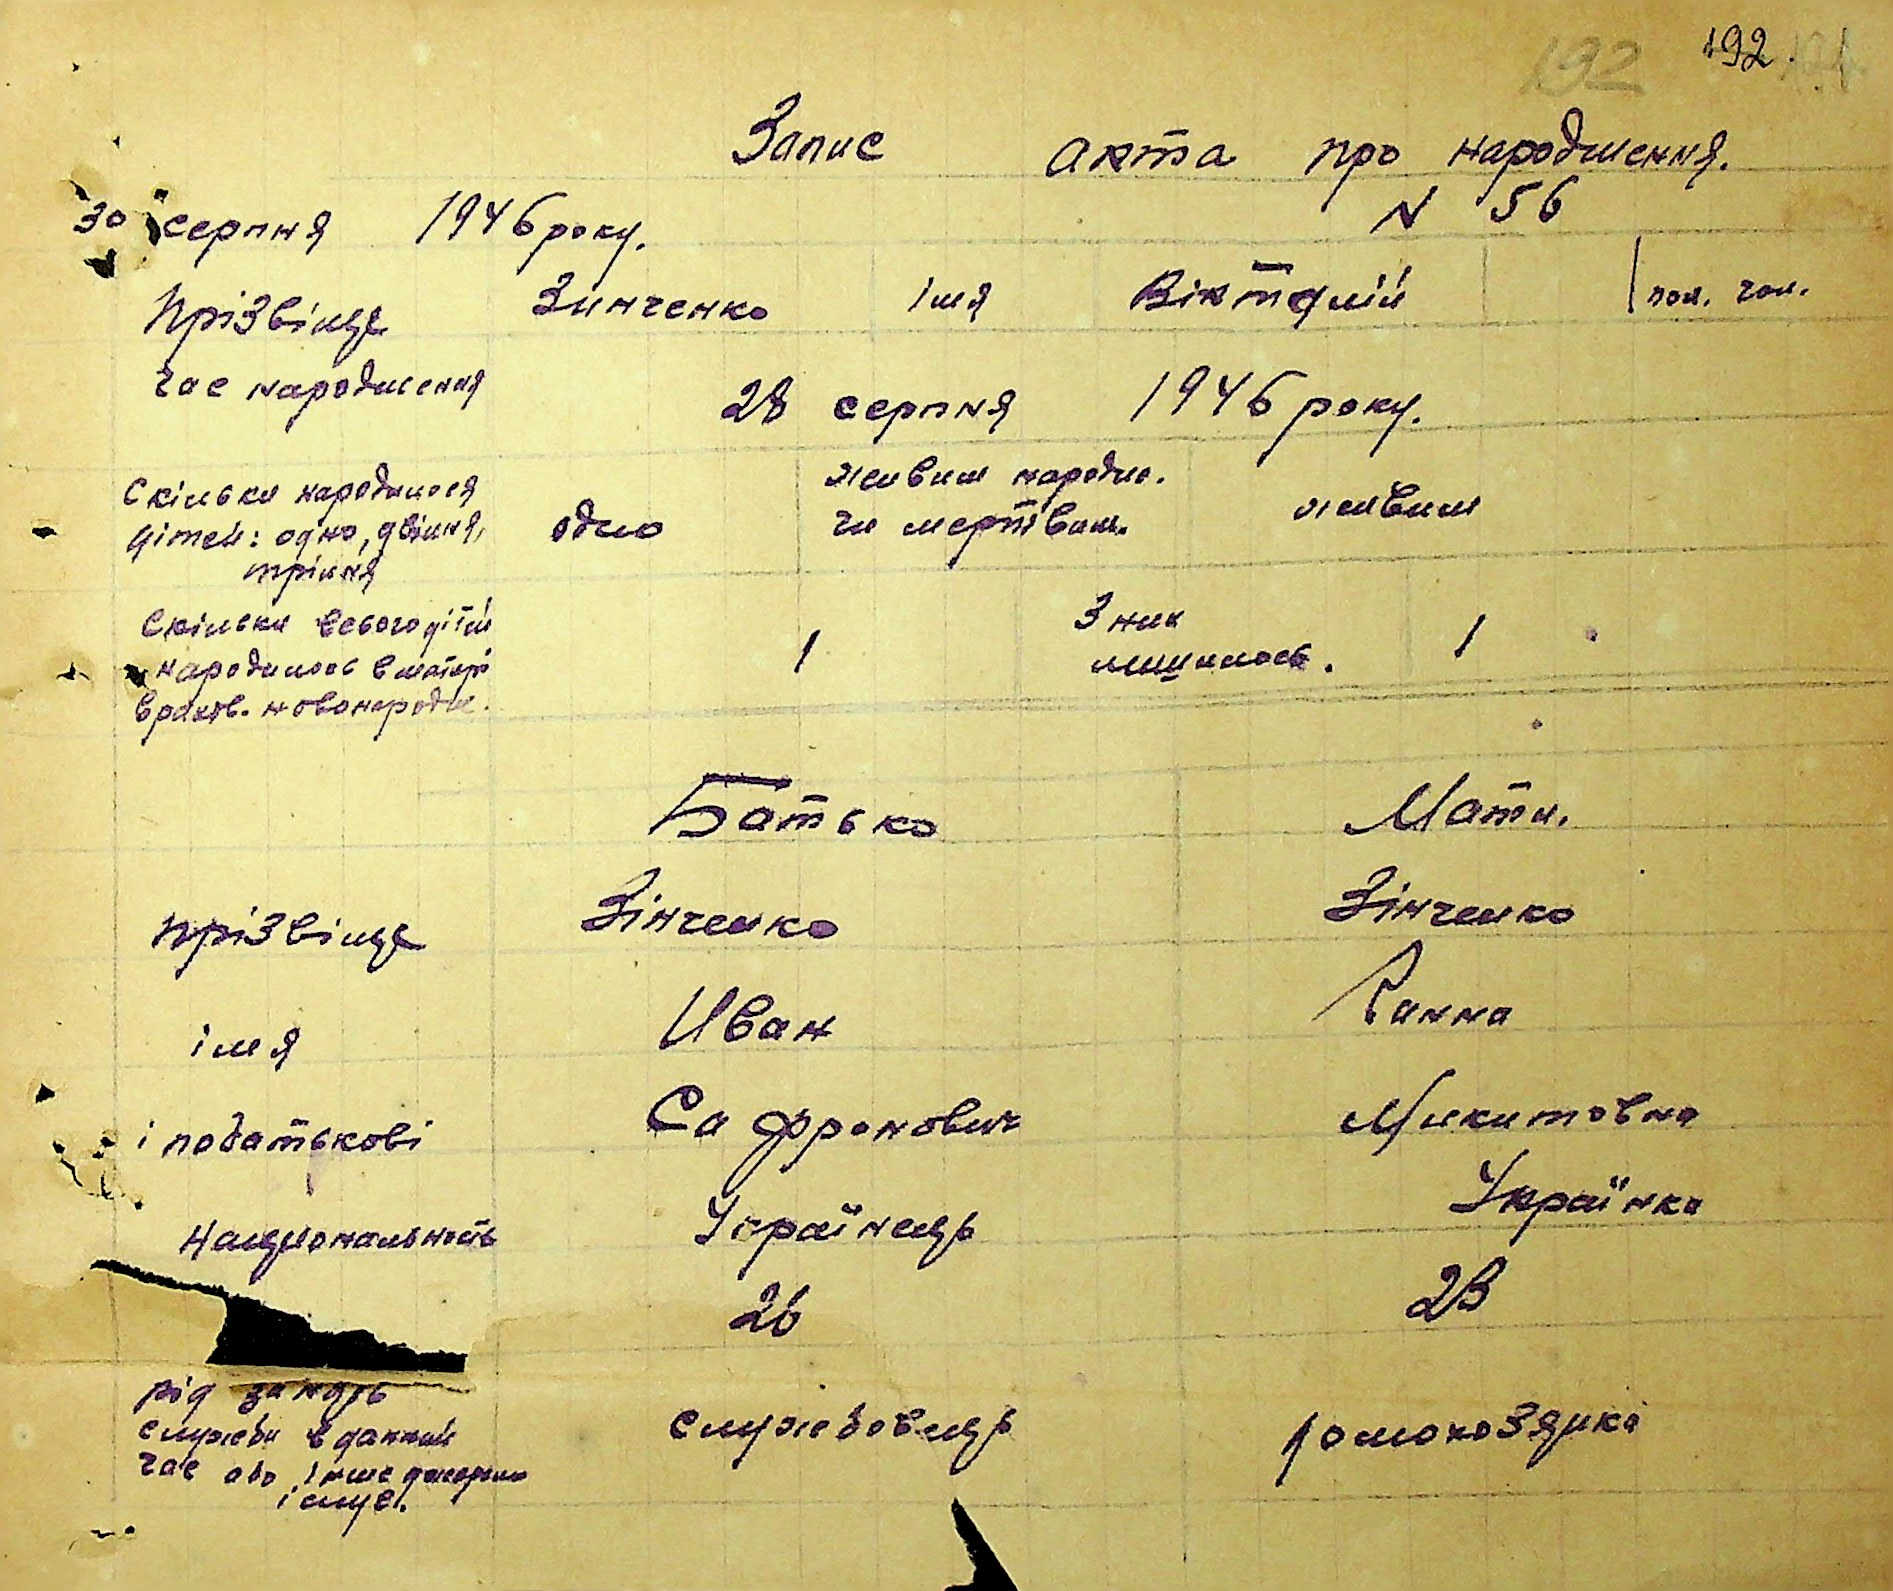 192 192.
Запис акта про народження.
30 серпня 1946 року. N 56
Прізвіще Зинченко імя Віктор пол. чол.
Час народження 28 серпня 1946 року.
Скільки народилося дітей: одно, двійня, трійня одно
живим народж. чи мертвим. живим
Скільки всього дітей народилось в матері враховю. новонародж. 1
З них лишилось. 1
Батько Мати.
прізвіще Зінченко Зінченко
імя Иван Ганна
і побатькові Сафронович Микитовна
Национальность Українець Українка
26 23
рід занять служби в данний час або інше джерело існув. службовець домохозяйка